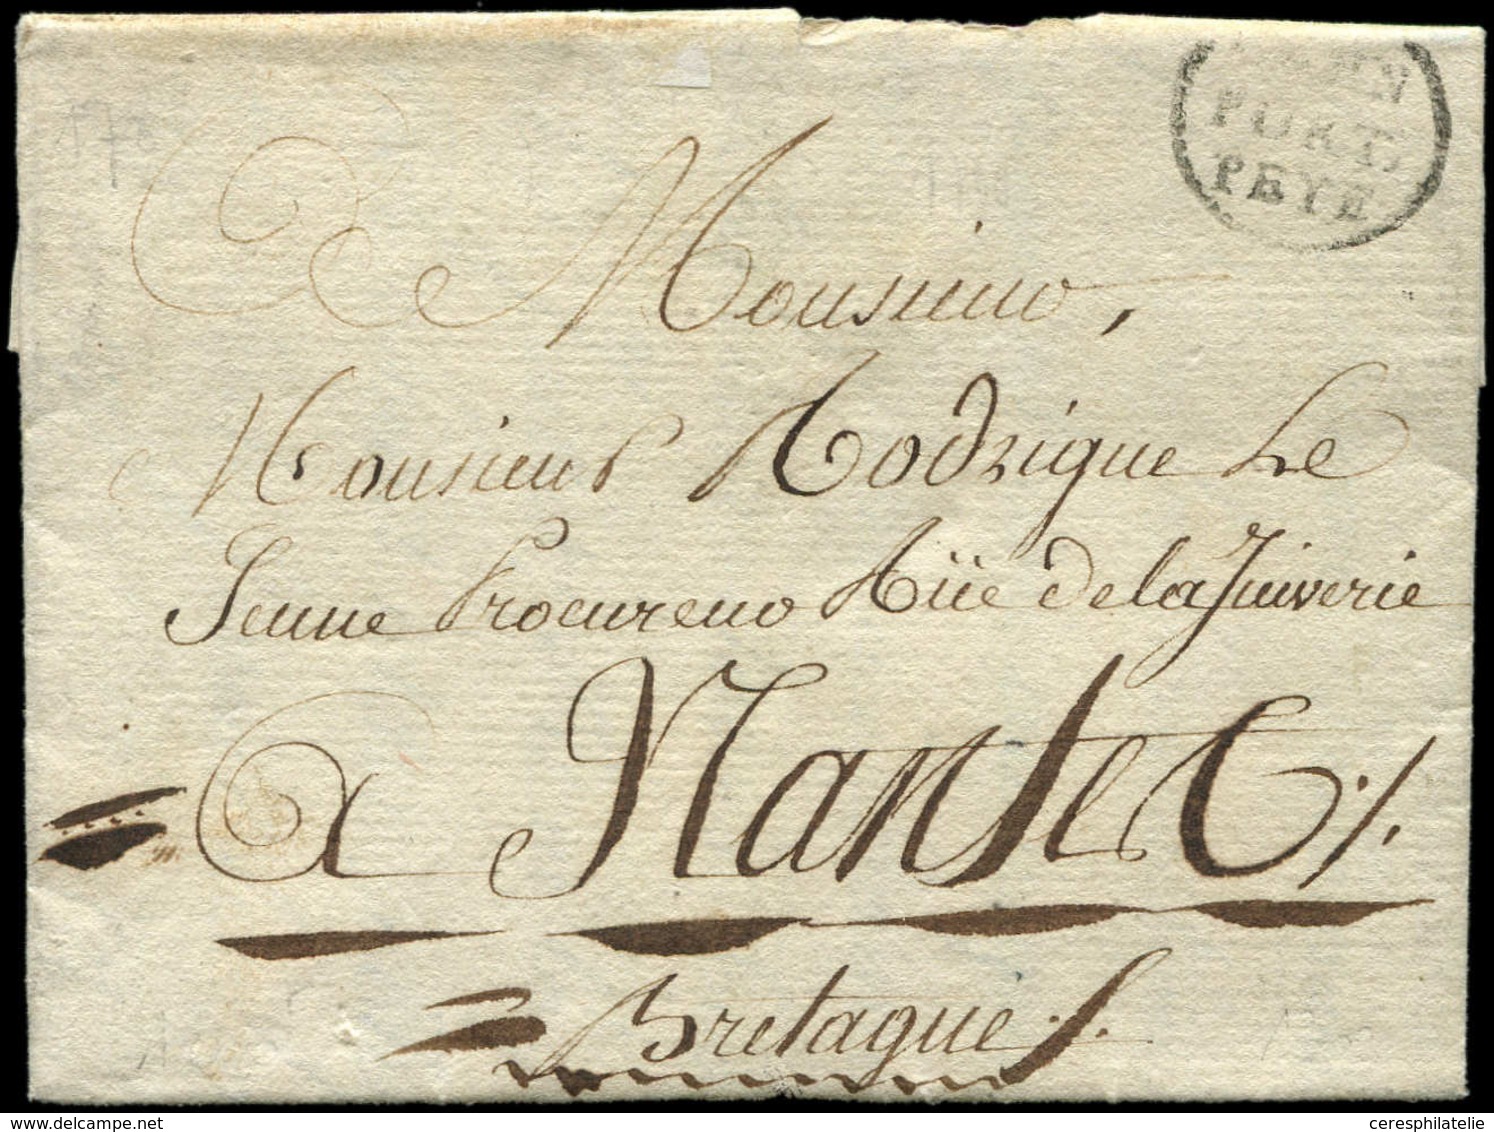 PORT
PAYE
Monsieur,
Monsieur Rodrigue Le
Jeune Procureur Rüe de la Juiverie
a Nantes ./.
Bretagne ./.
ceresphilatelie